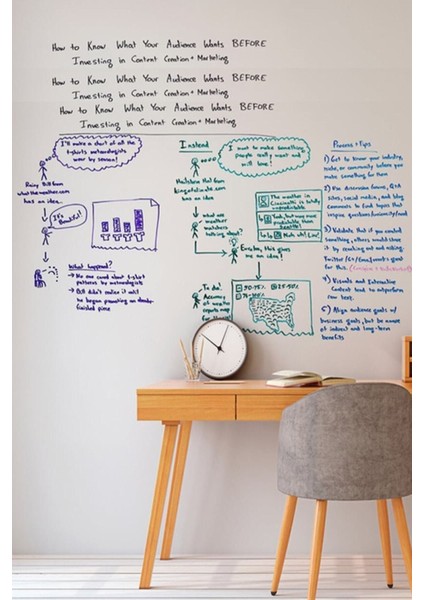 How to Know What Your Audience Wants BEFORE
Investing in Content Creation + Marketing
How to Know What Your Audience Wants BEFORE
Investing in Content Creation + Marketing
How to Know What Your Audience Wants BEFORE
Investing in Content Creation + Marketing
I'll make a chart of all the
t-shirts meteorologists
wear by season!
Rainy Bill from
whattheweather.com
has an idea...
It's Beautiful!
What happened?
→ No one cared about t-shirt
patterns by meteorologists
finished piece
Instead
I want to make something
people really want and
will love!
has an idea
what are
weather
watchers
talking about?
The weather in
Cincinnati is totally
unpredictable
Eureka, this gives
me an idea!
To do:
Accuracy
of weather
reports map
Process + Tips
1) Get to know your industry,
niche, or community before you
make something for them
2) Use discussion forums, Q&A
sites, social media, and blog
comments to find topics that
inspire questions/curiosity/need
3) Validate that if you create
something, others would share
it by reaching out and asking.
this.
4) Visuals and Interactive
Content tend to outperform
raw text.
5) Align audience goals w/
business goals, but be aware
of indirect and long-term
benefits